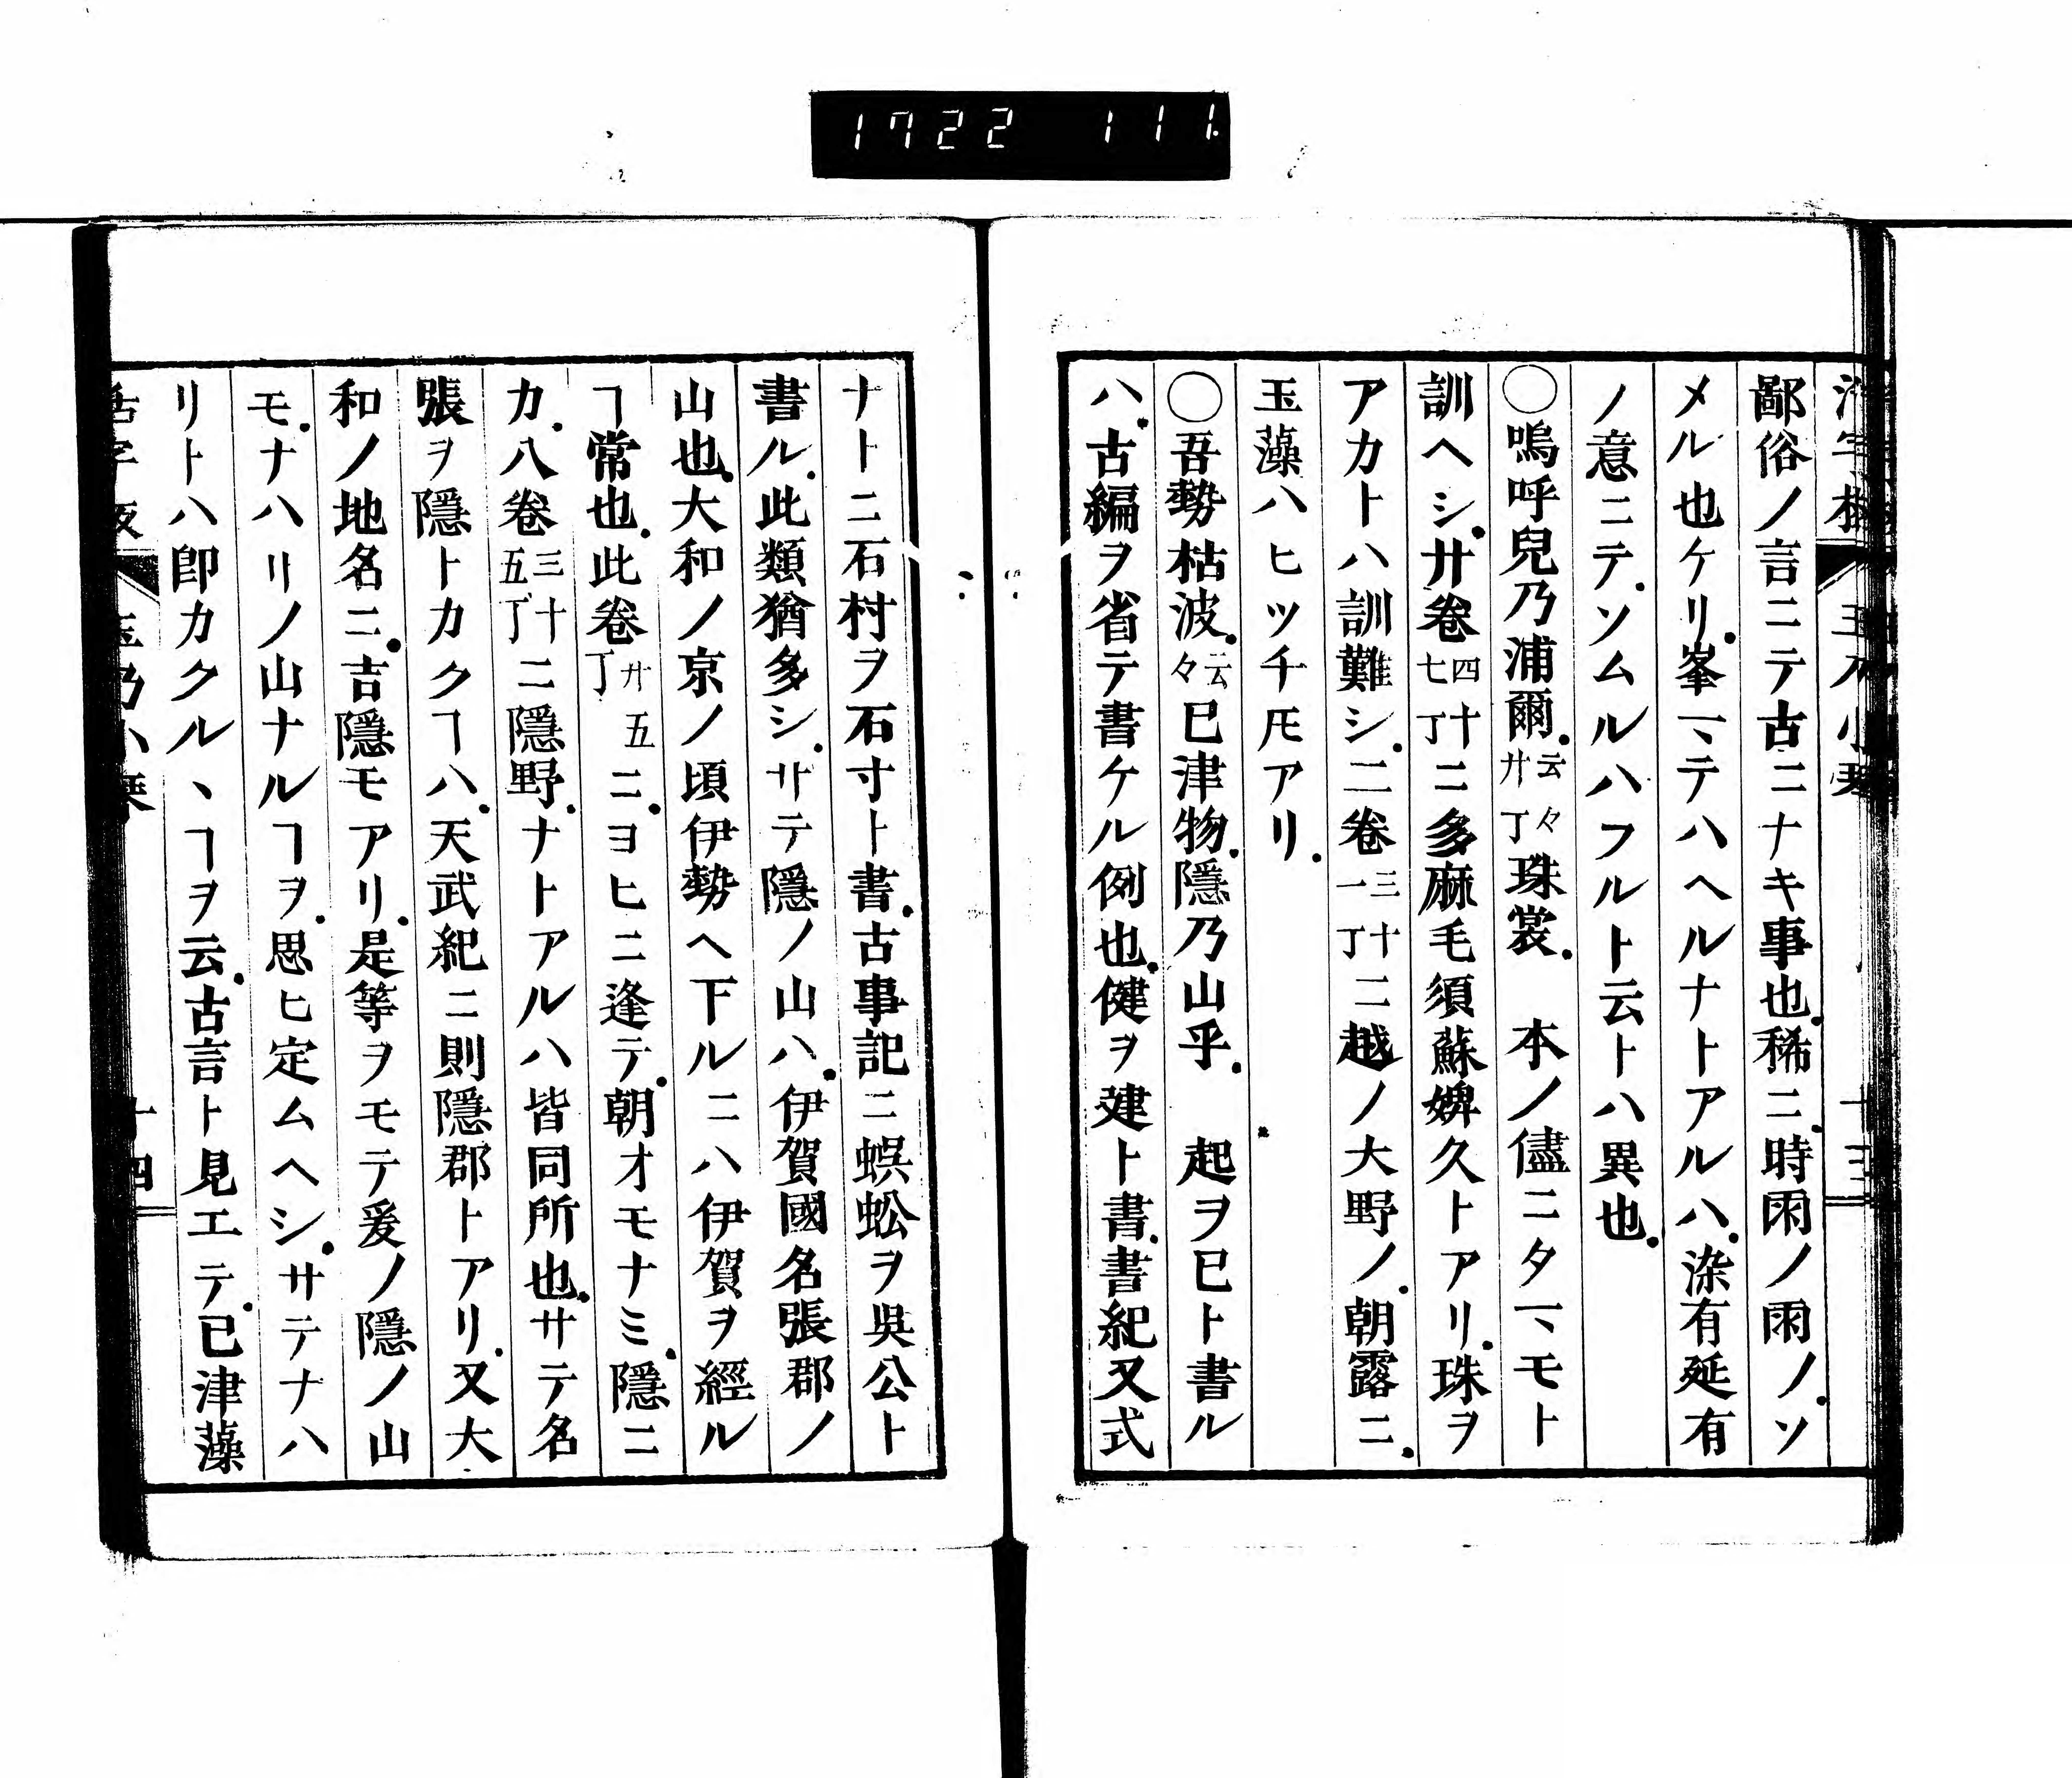 1722 111
鄙俗ノ言ニテ古ニナキ事也.稀ニ.時雨ノ雨ノ.ソ
メル也ケリ.峯ヽテハヘルナトアルハ.染有延有
ノ意ニテ.ソムルハフルト云トハ異也.
○嗚呼兒乃浦爾.云々廾丁珠裳. 本ノ儘ニタヽモト
訓ヘシ.廿卷四十七丁ニ多麻毛須蘇婢久トアリ.珠ヲ
アカトハ訓難シ.二卷三十一丁ニ越ノ大野ノ.朝露ニ.
玉藻ハヒツチ𪜈アリ.
○吾勢枯波.云々已津物.隱乃山乎. 起ヲ已ト書ル
ハ.古編ヲ省テ書ケル例也.健ヲ建ト書.書紀又式
ナトニ石村ヲ石寸ト書.古事記ニ蜈蚣ヲ吳公ト
書ル.此類猶多シ.サテ隱ノ山ハ.伊賀國名張郡ノ
山也.大和ノ京ノ頃伊勢ヘ下ルニハ伊賀ヲ經ル
ヿ常也.此卷廾五丁ニ.ヨヒニ逢テ.朝オモナミ.隱ニ
カ.八卷三十五丁ニ隱野.ナトアルハ皆同所也.サテ名
張ヲ隱トカクヿハ.天武紀ニ則隱郡トアリ.又大
和ノ地名ニ.吉隱モアリ.是等ヲモテ爰ノ隱ノ山
モ.ナハリノ山ナルヿヲ.思ヒ定ムヘシ.サテナハ
リトハ卽カクルヽヿヲ云.古言ト見エテ.已津藻
十四